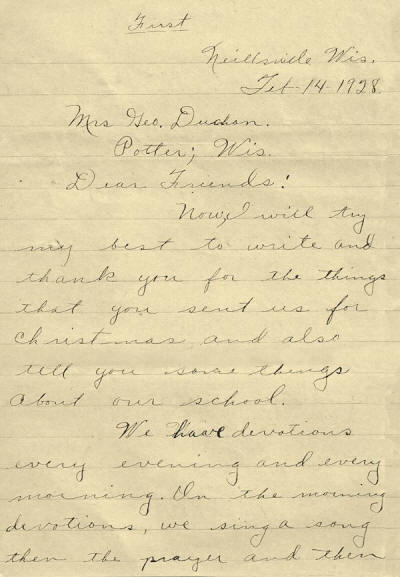 First
Neillsville Wis.
Feb-14-1928.
Mrs Geo. Duchon.
Potter; Wis.
Dear Friends!
Now, I will try
my best to write and
thank you for the things
that you sent us for
Christmas, and also
tell you some things
about our school.
We have devotions
every evening and every
morning. On the morning
devotions, we sing a song
then the prayer and then